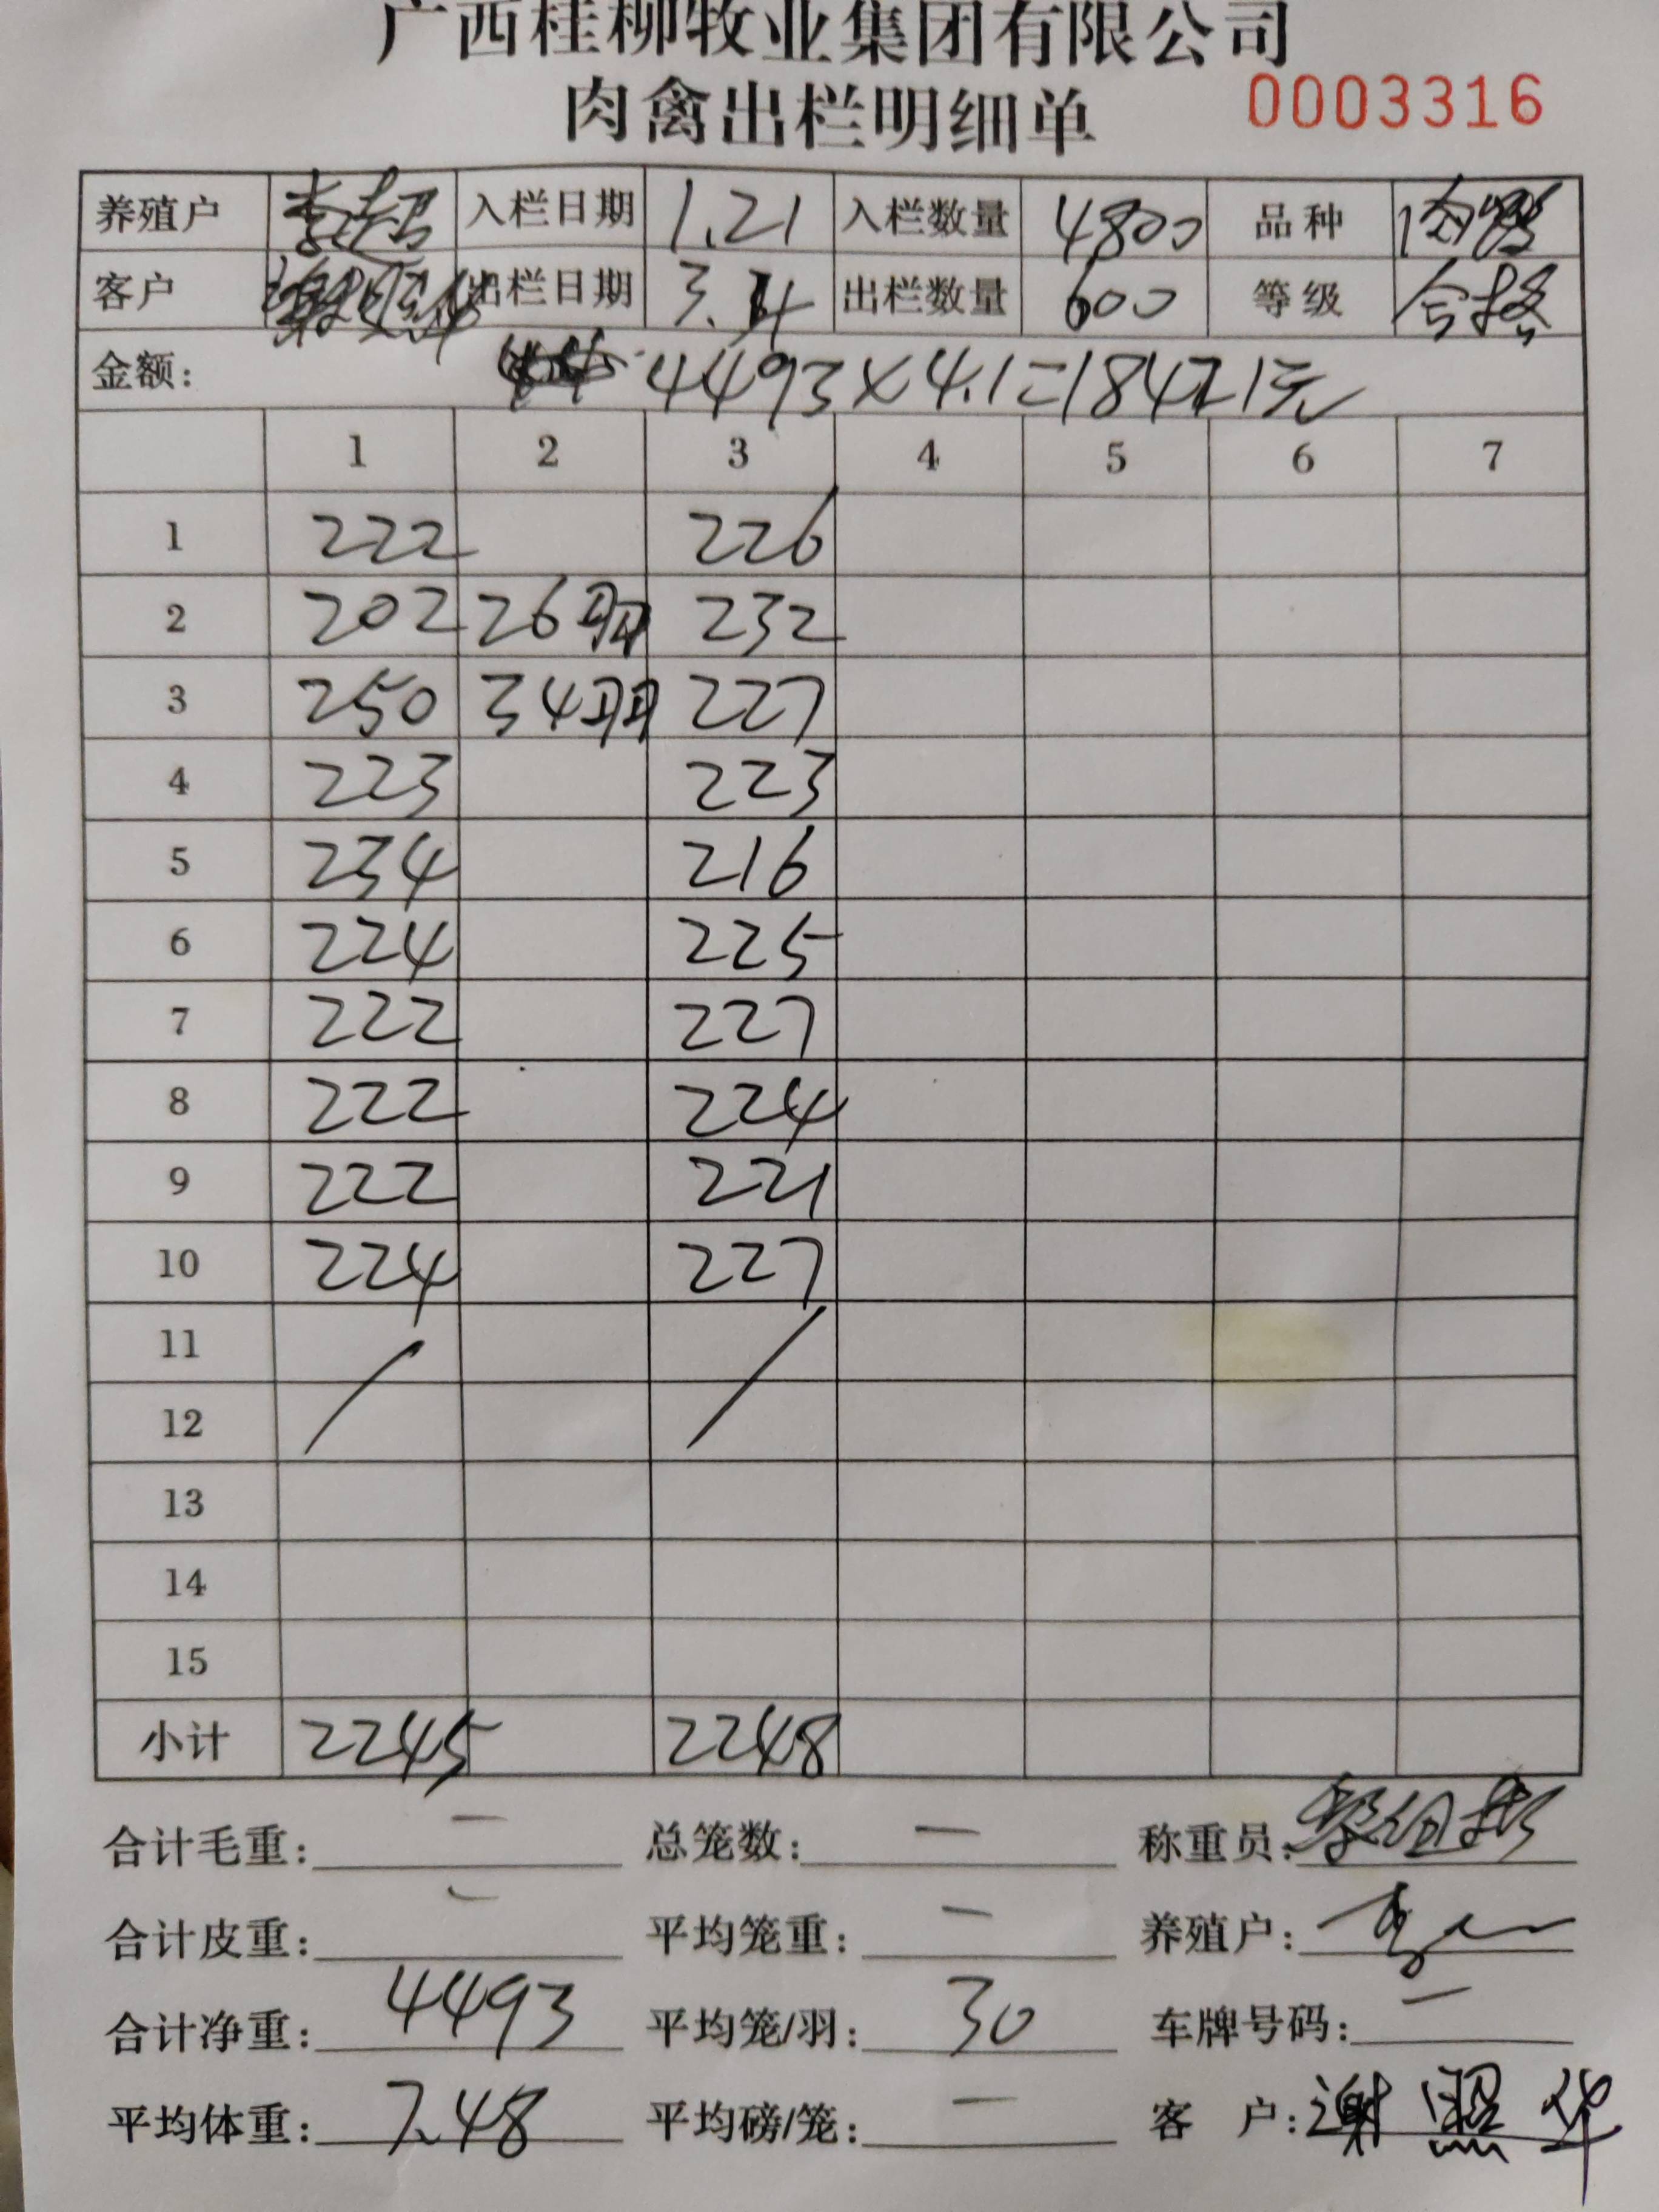 广西桂柳牧业集团有限公司
肉禽出栏明细单 0003316
养殖户 李超 入栏日期 1.21 入栏数量 4800 品种
客户 谢照华 出栏日期 3. 出栏数量 600 等级 合格
金额: 4493×4.1=18421元
1 2 3 4 5 6 7
1 222 226
2 202 26羽 232
3 250 34羽 227
4 223 223
5 234 216
6 224 225
7 222 227
8 222 224
9 222 221
10 224 227
11
12
13
14
15
小计 2245 2248
合计毛重: — 总笼数: — 称重员:
合计皮重: — 平均笼重: — 养殖户:
合计净重: 4493 平均笼/羽: 30 车牌号码: —
平均体重: 7.48 平均磅/笼: — 客 户: 谢照华